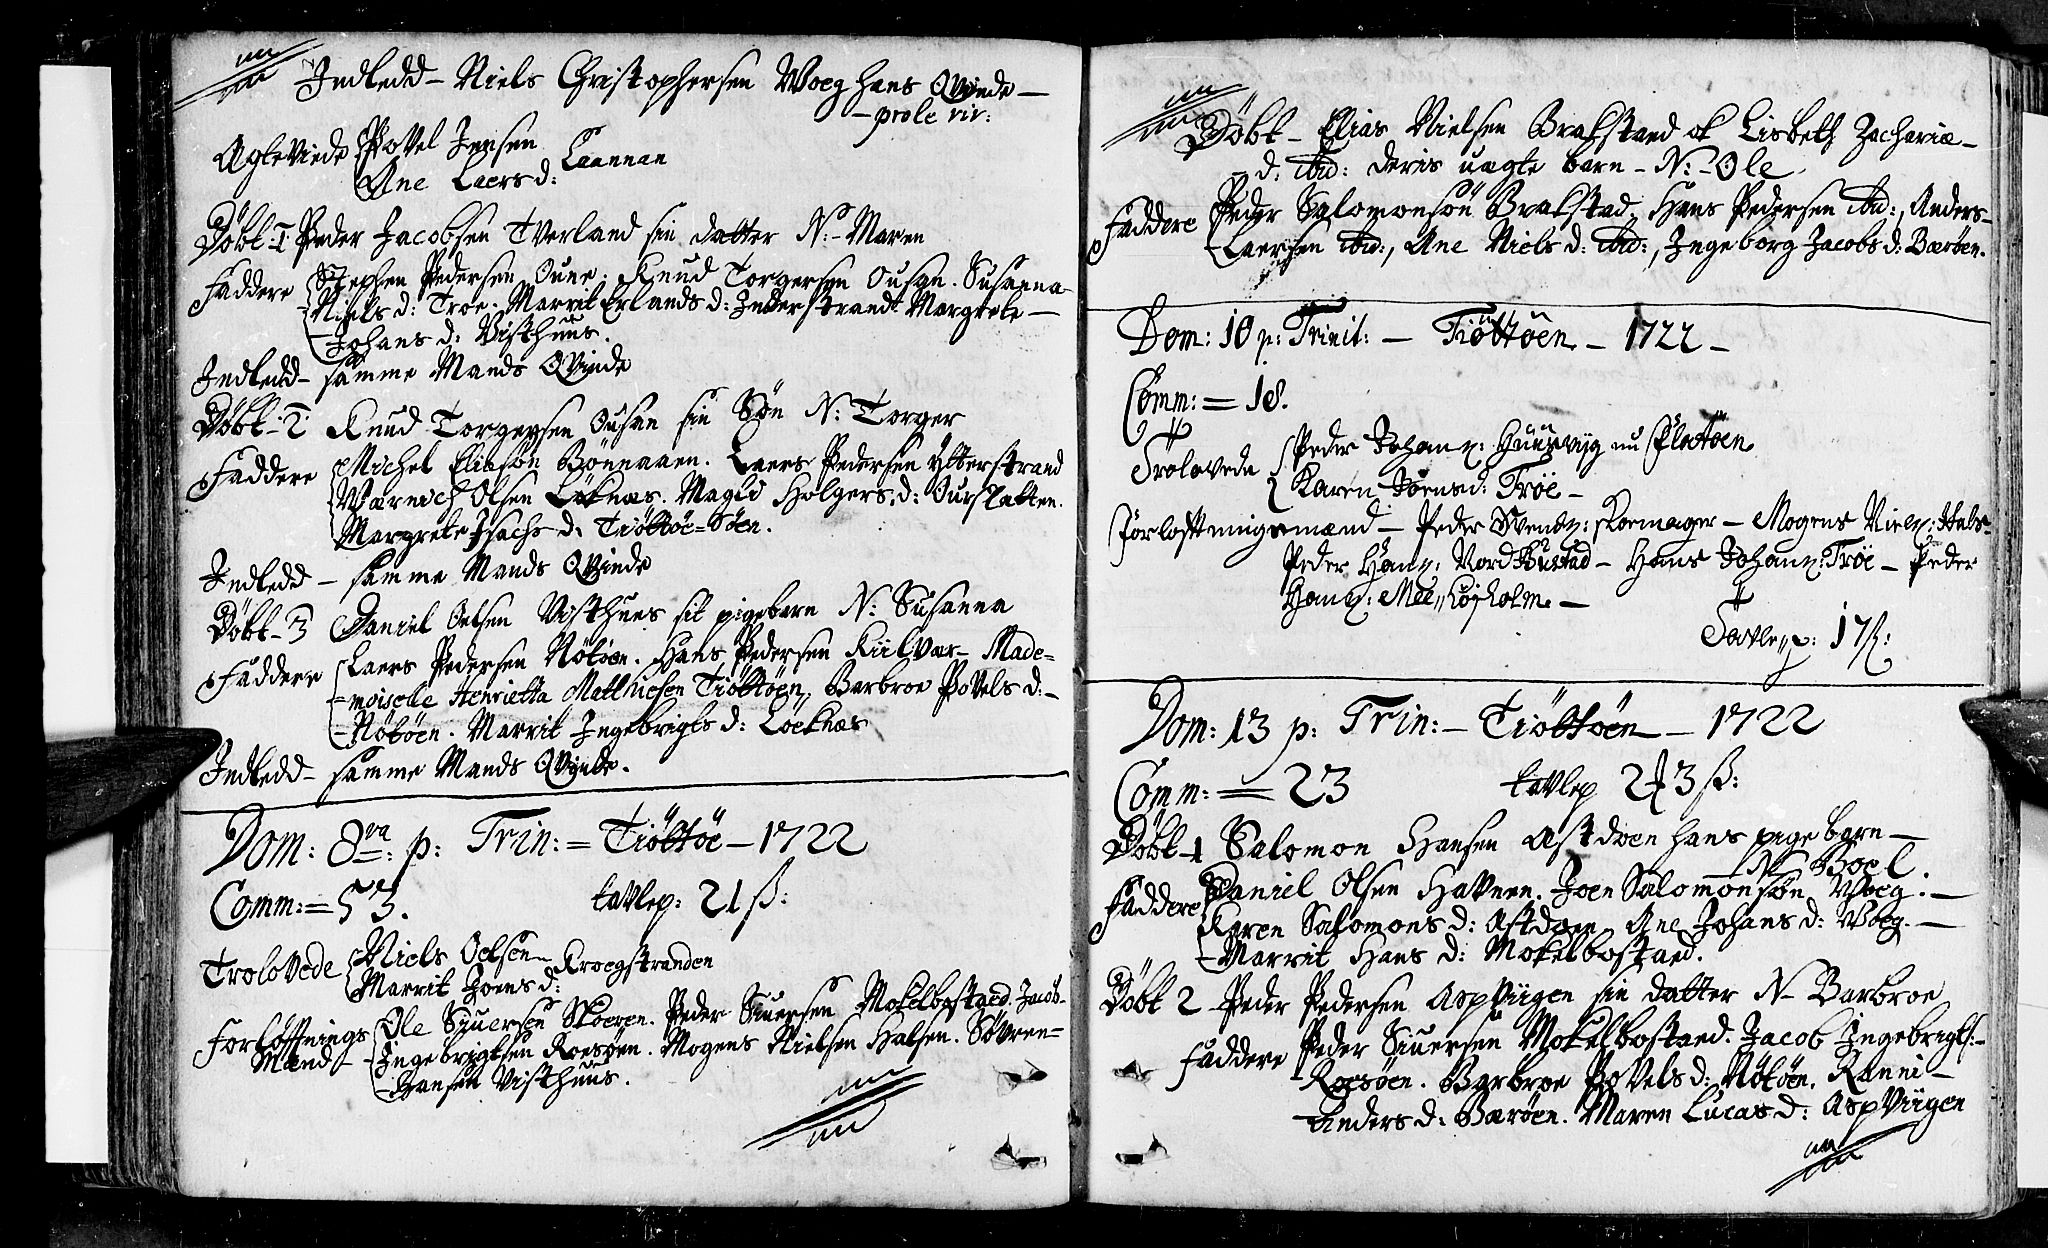 Indledd – Niels Christophersen Woeg hans Qvinde –
– prole vir:
Agteviede Povel Jensen
Ane Laersd: Laannan
Döbt: 1 Peder Jacobsen Tverland sin datter N: – Maren
Faddere Stephen Pedersen Oune. Knud Torgersen Ousan. Susanna
Niels d: Troe. Marrit Erlands d: Inderstrand. Margrete –
– Johans d: Visthuus.
Indledd – samme Mands Qvinde
Döbt – 2 Knud Torgersen Ousan sin Sön N: Torger
Faddere Michel Eliasön Bönnaaen. Laers Pedersen Ytterstrand
Olsen Löknæs. Magli Holgers: d:
Margrete Isachs d: Tiöttöe=Söen.
Indledd – samme Mands Qvinde
Döbt – 3 Daniel Oelsen Visthuus sit pigebarn N: Susanna
Faddere Laers Pedersen Nötöen. Hans Pedersen Kiilvær – Made=
=moiselle Henrietta Matthiesen Tiöttöen, Barbroe Povels d: –
– Nötöen. Marrit Ingebrigts d: Löeknæs
Indledd – samme Mands Qvinde.
Dom: 8va: p: Trin: = Tiöttöe – 1722
Comm: = 53. tavlep: 21 ß:
Trolovede Niels Oelsen Kroegstranden
Marrit Joens d:
Forlöffnings Ole Siuersen Skoeren. Peder Siuersen Mokelbostaed. Jacob –
Mænd – Ingebrigtsen Roesöen. Mogens Nielsen Halsen. Sövren=
– Hansen Visthuus.
Döbt – Elias Nielsen Brakstaed ok Lisbeth Zachariæ –
– d: ibid: deris uægte barn – N: – Ole
Faddere Peder Salomonsön Brakstad, Hans Pedersen ibid:, Anders –
– Laersen ibid:, Ane Niels d: ibid:, Ingeborg Jacobs d: Bæröen.
Dom: 10 p: Trinit: – Tiöttöen – 1722 –
Comm: = 18.
Trolovede Peder Johanz: Huusvyg nu
Karen Joensd: Tröe –
Forlofftningsmænd – Peder Svendz: – Mogens Nielz: Hals –
Peder Hanz: Nord Bustad – Hans Johanz: Tröe – Peder
Hanz: –
Tavle p: 17 ß:
Dom: 13 p: Trin: – Tiöttöen – 1722
Comm: = 23 tavlep 2 3 ß:
Döbt – 1 Salomon Hansen Astdoen hans pige barn –
– N: Boel.
Faddere Daniel Olsen Havnen. Joen Salomonsön Woeg. –
Karen Salomons d: Astdoen Ane Johans d: Woeg. –
– Marrit Hans d: Mokelbostaed.
Döbt 2 – Peder Pedersen Aspviigen sin datter N – Barbroe
Faddere Peder Siuersen Mokelbostaed. Jacob Ingebrigts: –
– Roesöen. Barbroe Povels d: Nötöen. Ranni –
– Anders d: Bæröen. Maren Lucas d: Aspviigen